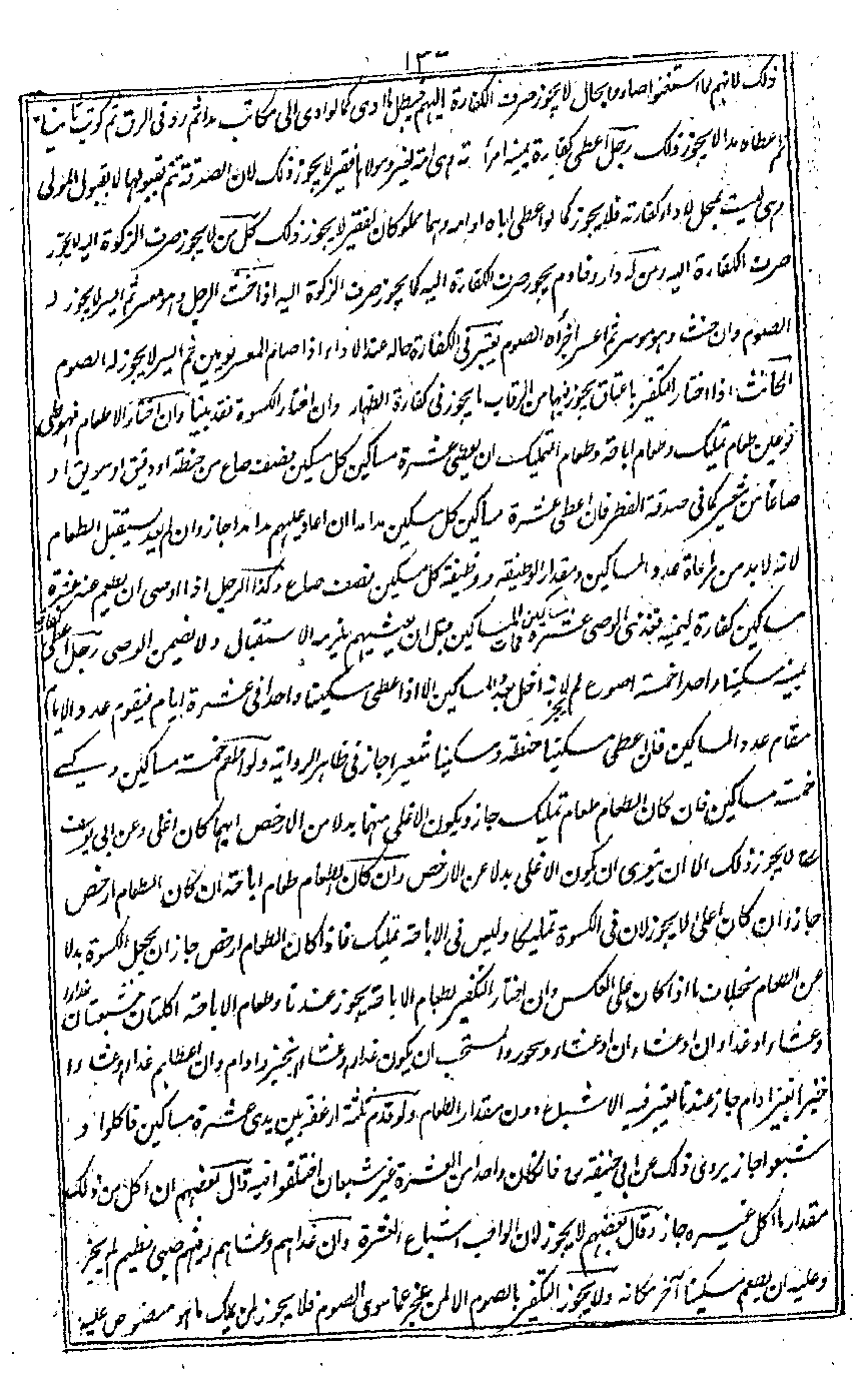 ذلك لانهم لما استغنوا صاروا بحال لا يجوز صرف الكفارة اليهم فيبطل ما ادى كما لو ادى الى مكاتب مدا ثم رد فى الرق ثم كوتب ثانيا
ثم اعطاه مدا لا يجوز ذلك رجل اعطى كفارة يمينه امرأة وهى امة لغيره ومولاها فقير لا يجوز ذلك لان الصدقة تتم بقبولها لا بقبول المولى
وهى ليست بمحل لاداء كفارته فلا يجوز كما لو اعطى اباه او امه وهما مملوكان لفقير لا يجوز ذلك كل من لا يجوز صرف الزكوة اليه لا يجوز
صرف الكفارة اليه ومن له دار وخادم يجوز صرف الكفارة اليه كما يجوز صرف الزكوة اليه اذا حنث الرجل وهو معسر ثم ايسر لا يجوز له
الصوم وان حنث وهو موسر ثم اعسر اجزأه الصوم يعتبر فى الكفارة حاله عند الاداء اذا صام المعسر يومين ثم ايسر لا يجوز له الصوم
الحانث اذا اختار التكفير باعتاق يجوز فيها من الرقاب ما يجوز فى كفارة الظهار وان اختار الكسوة فقد بينا وان اختار الاطعام فهو على
نوعين طعام تمليك وطعام اباحة وطعام التمليك ان يعطى عشرة مساكين كل مسكين نصف صاع من حنطة او دقيق او سويق او
صاعا من شعير كما فى صدقة الفطر فان اعطى عشرة مساكين كل مسكين مدا مدا ان اعاد عليهم مدا مدا جاز وان لم يعد يستقبل الطعام
لانه لا بد من مراعاة عدد المساكين ومقدار الوظيفة ووظيفة كل مسكين نصف صاع وكذا الرجل اذا اوصى ان يطعم عنه عشرة
مساكين كفارة ليمينه فغدى الوصى عشرة مساكين فمات المساكين قبل ان يعشيهم يلزمه الاستقبال ولا يضمن الوصى رجل اعطى كفارة
يمينه مسكينا واحدا خمسة اصوع لم يجز لانه اخل بعدد المساكين الا اذا اعطى مسكينا واحدا فى عشرة ايام فيقوم عدد الايام
مقام عدد المساكين فان اعطى مسكينا حنطة ومسكينا شعيرا جاز فى ظاهر الرواية ولو اطعم خمسة مساكين وكسى
خمسة مساكين فان كان الطعام طعام تمليك جاز ويكون الاغلى منهما بدلا من الارخص ايهما كان اغلى وعن ابى يوسف
رح لا يجوز ذلك الا ان ينوى ان يكون الاغلى بدلا عن الارخص وان كان الطعام طعام اباحة ان كان الطعام ارخص
جاز وان كان اغلى لا يجوز لان فى الكسوة تمليكا وليس فى الاباحة تمليك فاذا كان الطعام ارخص جاز ان يجعل الكسوة بدلا
عن الطعام بخلاف ما اذا كان على العكس وان اختار التكفير لطعام الاباحة يجوز عندنا وطعام الاباحة اكلتان مشبعتان غداء
وعشاء او غداءان او عشاءان او عشاء وسحور والمستحب ان يكون غداء وعشاء بخبز وادام وان اعطاهم غداء وعشاء
خبزا بغير ادام جاز عندنا يعتبر فيه الاشباع دون مقدار الطعام ولو قدم ثلثة ارغفة بين يدى عشرة مساكين فاكلوا و
شبعوا جاز يروى ذلك عن ابى حنيفة رح فان كان واحد من العشرة غير شبعان اختلفوا فيه قال بعضهم ان اكل من ذلك
مقدار ما اكل غيره جاز وقال بعضهم لا يجوز لان الواجب اشباع العشرة وان غداهم وعشاهم وفيهم صبى فطيم لم يجز
وعليه ان يطعم مسكينا آخر مكانه ولا يجوز التكفير بالصوم الا لمن عجز عما سوى الصوم فلا يجوز لمن يملك ما هو منصوص عليه